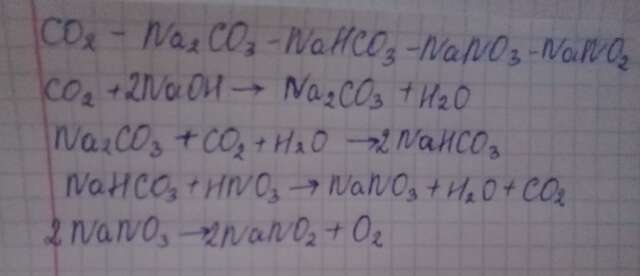 CO2 - Na2CO3 - NaHCO3 - NaNO3 - NaNO2
CO2 + 2NaOH → Na2CO3 + H2O
Na2CO3 + CO2 + H2O → 2NaHCO3
NaHCO3 + HNO3 → NaNO3 + H2O + CO2
2NaNO3 → 2NaNO2 + O2